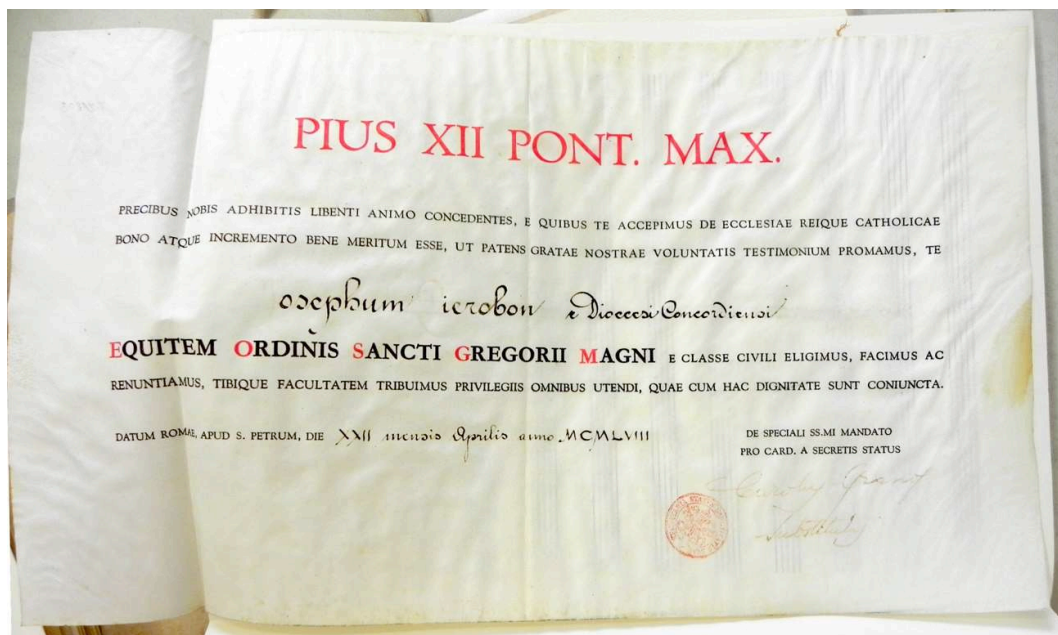 PIUS XII PONT. MAX.
PRECIBUS NOBIS ADHIBITIS LIBENTI ANIMO CONCEDENTES, E QUIBUS TE ACCEPIMUS DE ECCLESIAE REIQUE CATHOLICAE
BONO ATQUE INCREMENTO BENE MERITUM ESSE, UT PATENS GRATAE NOSTRAE VOLUNTATIS TESTIMONIUM PROMAMUS, TE
osephum ierobon e Dioecesi Concordiensi
EQUITEM ORDINIS SANCTI GREGORII MAGNI E CLASSE CIVILI ELIGIMUS, FACIMUS AC
RENUNTIAMUS, TIBIQUE FACULTATEM TRIBUIMUS PRIVILEGIIS OMNIBUS UTENDI, QUAE CUM HAC DIGNITATE SUNT CONIUNCTA.
DATUM ROMAE, APUD S. PETRUM, DIE XXII mensis Aprilis anno MCMLVIII
DE SPECIALI SS.MI MANDATO
PRO CARD. A SECRETIS STATUS